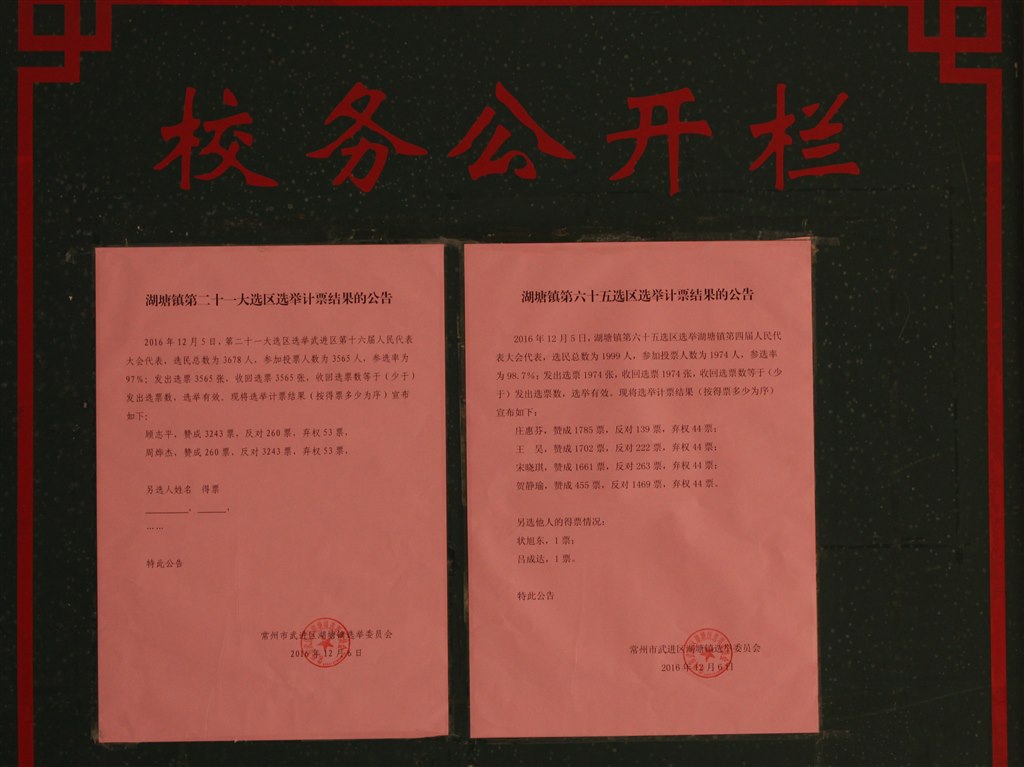 校务公开栏
湖塘镇第二十一大选区选举计票结果的公告
2016年12月5日，第二十一大选区选举武进区第十六届人民代表
大会代表，选民总数为3678人，参加投票人数为3565人，参选率为
97%；发出选票3565张，收回选票3565张，收回选票数等于（少于）
发出选票数，选举有效。现将选举计票结果（按得票多少为序）宣布
如下：
顾志平，赞成3243票，反对260票，弃权53票，
周烨杰，赞成260票，反对3243票，弃权53票，
另选人姓名 得票
________，______，
……
特此公告
常州市武进区湖塘镇选举委员会
2016年12月6日
湖塘镇第六十五选区选举计票结果的公告
2016年12月5日，湖塘镇第六十五选区选举湖塘镇第四届人民代
表大会代表，选民总数为1999人，参加投票人数为1974人，参选率
为98.7%；发出选票1974张，收回选票1974张，收回选票数等于（少
于）发出选票数，选举有效。现将选举计票结果（按得票多少为序）
宣布如下：
庄惠芬，赞成1785票，反对139票，弃权44票；
王 昊，赞成1702票，反对222票，弃权44票；
宋晓琪，赞成1661票，反对263票，弃权44票；
贺静瑜，赞成455票，反对1469票，弃权44票。
另选他人的得票情况：
状旭东，1票；
吕成达，1票。
特此公告
常州市武进区湖塘镇选举委员会
2016年12月6日